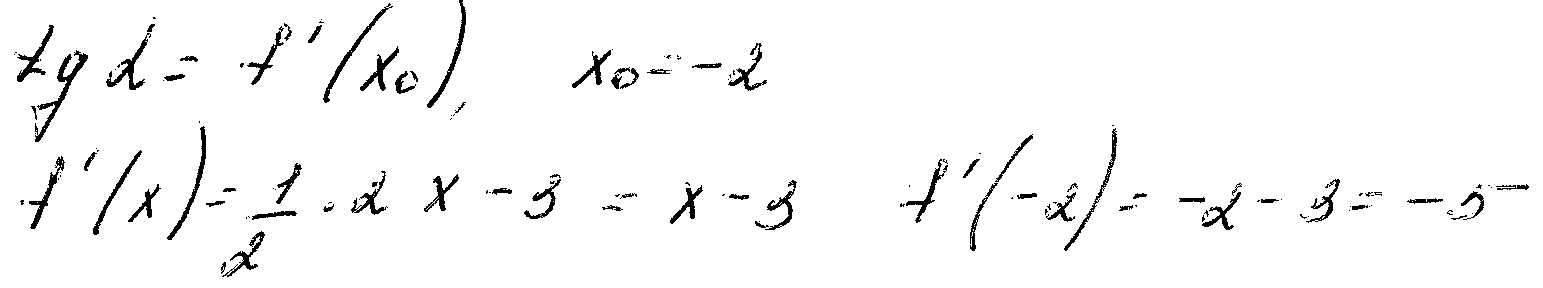 tg α = f'(x₀), x₀ = -2
f'(x) = 1/2 · 2x - 3 = x - 3 f'(-2) = -2 - 3 = -5